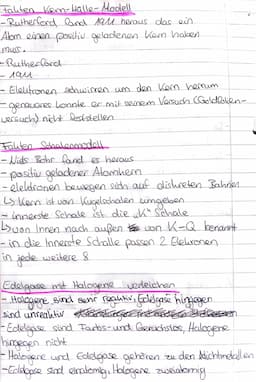 Fakten Kern-Hülle-Modell
- Rutherford fand 1911 heraus das ein
Atom einen positiv geladenen Kern haben
muss.
- Rutherford
- 1911
- Elektronen schwirren um den Kern herum
- genaueres konnte er mit seinem Versuch (Goldfolien-
versuch) nicht feststellen
Fakten Schalenmodell
- Niels Bohr fand es heraus
- positiv geladener Atomkern
- elektronen bewegen sich auf diskreten Bahnen
↳ Kern ist von Kugelschalen umgeben
- innerste Schale ist die „K" Schale
↳ von Innen nach außen von K-Q benannt
- in die Innerste Schalle passen 2 Elektronen
in jede weitere 8
Edelgase mit Halogene vergleichen
- Halogene sind sehr reaktiv, Edelgase hingegen
sind unreaktiv
- Edelgase sind Farbs- und Geruchslos, Halogene
hingegen nicht
- Halogene und Edelgase gehören zu den Nichtmetallen
- Edelgase sind einatomig, Halogene zweiatomig